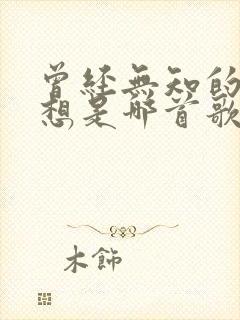 曾經無知的
想是哪首歌
木飾